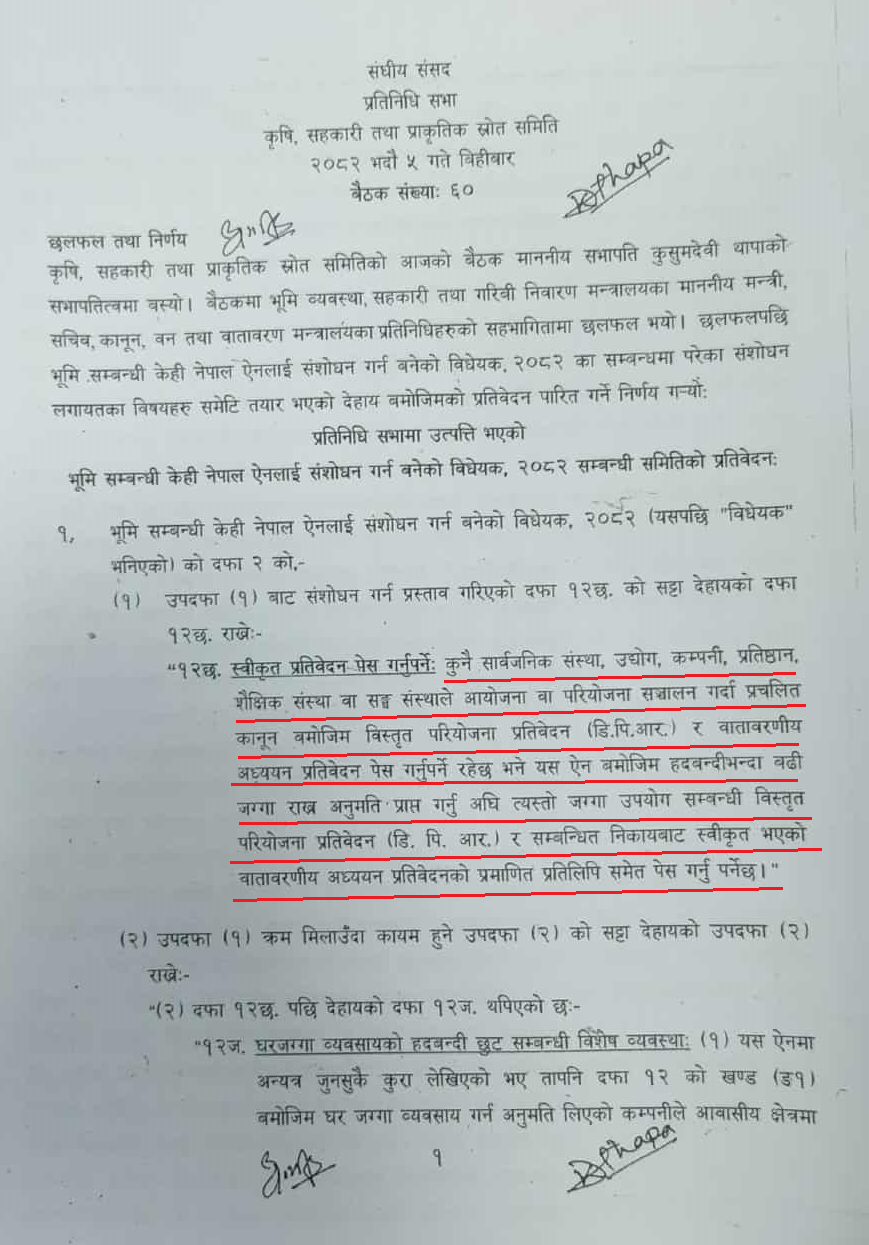 संघीय संसद
प्रतिनिधि सभा
कृषि, सहकारी तथा प्राकृतिक स्रोत समिति
२०८२ भदौ ५ गते बिहीबार
बैठक संख्याः ६०
Dthapa
छलफल तथा निर्णय
कृषि, सहकारी तथा प्राकृतिक स्रोत समितिको आजको बैठक माननीय सभापति कुसुमदेवी थापाको
सभापतित्वमा बस्यो। बैठकमा भूमि व्यवस्था, सहकारी तथा गरिबी निवारण मन्त्रालयका माननीय मन्त्री,
सचिव, कानून, वन तथा वातावरण मन्त्रालयका प्रतिनिधिहरुको सहभागितामा छलफल भयो। छलफलपछि
भूमि सम्बन्धी केही नेपाल ऐनलाई संशोधन गर्न बनेको विधेयक, २०८२ का सम्बन्धमा परेका संशोधन
लगायतका विषयहरु समेटि तयार भएको देहाय बमोजिमको प्रतिवेदन पारित गर्ने निर्णय गर्‍यौः
प्रतिनिधि सभामा उत्पत्ति भएको
भूमि सम्बन्धी केही नेपाल ऐनलाई संशोधन गर्न बनेको विधेयक, २०८२ सम्बन्धी समितिको प्रतिवेदनः
१. भूमि सम्बन्धी केही नेपाल ऐनलाई संशोधन गर्न बनेको विधेयक, २०८२ (यसपछि "विधेयक"
भनिएको) को दफा २ को,-
(१) उपदफा (१) बाट संशोधन गर्न प्रस्ताव गरिएको दफा १२छ. को सट्टा देहायको दफा
१२छ. राख्नेः-
"१२छ. स्वीकृत प्रतिवेदन पेस गर्नुपर्नेः कुनै सार्वजनिक संस्था, उद्योग, कम्पनी, प्रतिष्ठान,
शैक्षिक संस्था वा सङ्घ संस्थाले आयोजना वा परियोजना सञ्चालन गर्दा प्रचलित
कानून बमोजिम विस्तृत परियोजना प्रतिवेदन (डि.पि.आर.) र वातावरणीय
अध्ययन प्रतिवेदन पेस गर्नुपर्ने रहेछ भने यस ऐन बमोजिम हदबन्दीभन्दा बढी
जग्गा राख्न अनुमति प्राप्त गर्नु अघि त्यस्तो जग्गा उपयोग सम्बन्धी विस्तृत
परियोजना प्रतिवेदन (डि. पि. आर.) र सम्बन्धित निकायबाट स्वीकृत भएको
वातावरणीय अध्ययन प्रतिवेदनको प्रमाणित प्रतिलिपि समेत पेस गर्नु पर्नेछ।"
(२) उपदफा (१) क्रम मिलाउँदा कायम हुने उपदफा (२) को सट्टा देहायको उपदफा (२)
राख्नेः-
"(२) दफा १२छ. पछि देहायको दफा १२ज. थपिएको छः-
"१२ज. घरजग्गा व्यवसायको हदबन्दी छुट सम्बन्धी विशेष व्यवस्थाः (१) यस ऐनमा
अन्यत्र जुनसुकै कुरा लेखिएको भए तापनि दफा १२ को खण्ड (ङ१)
बमोजिम घर जग्गा व्यवसाय गर्न अनुमति लिएको कम्पनीले आवासीय क्षेत्रमा
१
Dthapa